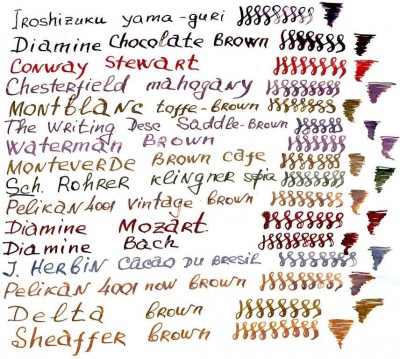 Iroshizuku yama-guri
Diamine Chocolate Brown
Conway Stewart
Chesterfield mahogany
Montblanc toffe-Brown
The Writing Desc Saddle-Brown
Waterman Brown
Monteverde Brown cafe
Sch. Rohrer Klingner sepia
Pelikan 4001 vintage Brown
Diamine Mozart
Diamine Bach
J. Herbin Cacao Du Bresil
Pelikan 4001 now Brown
Delta Brown
Sheaffer Brown